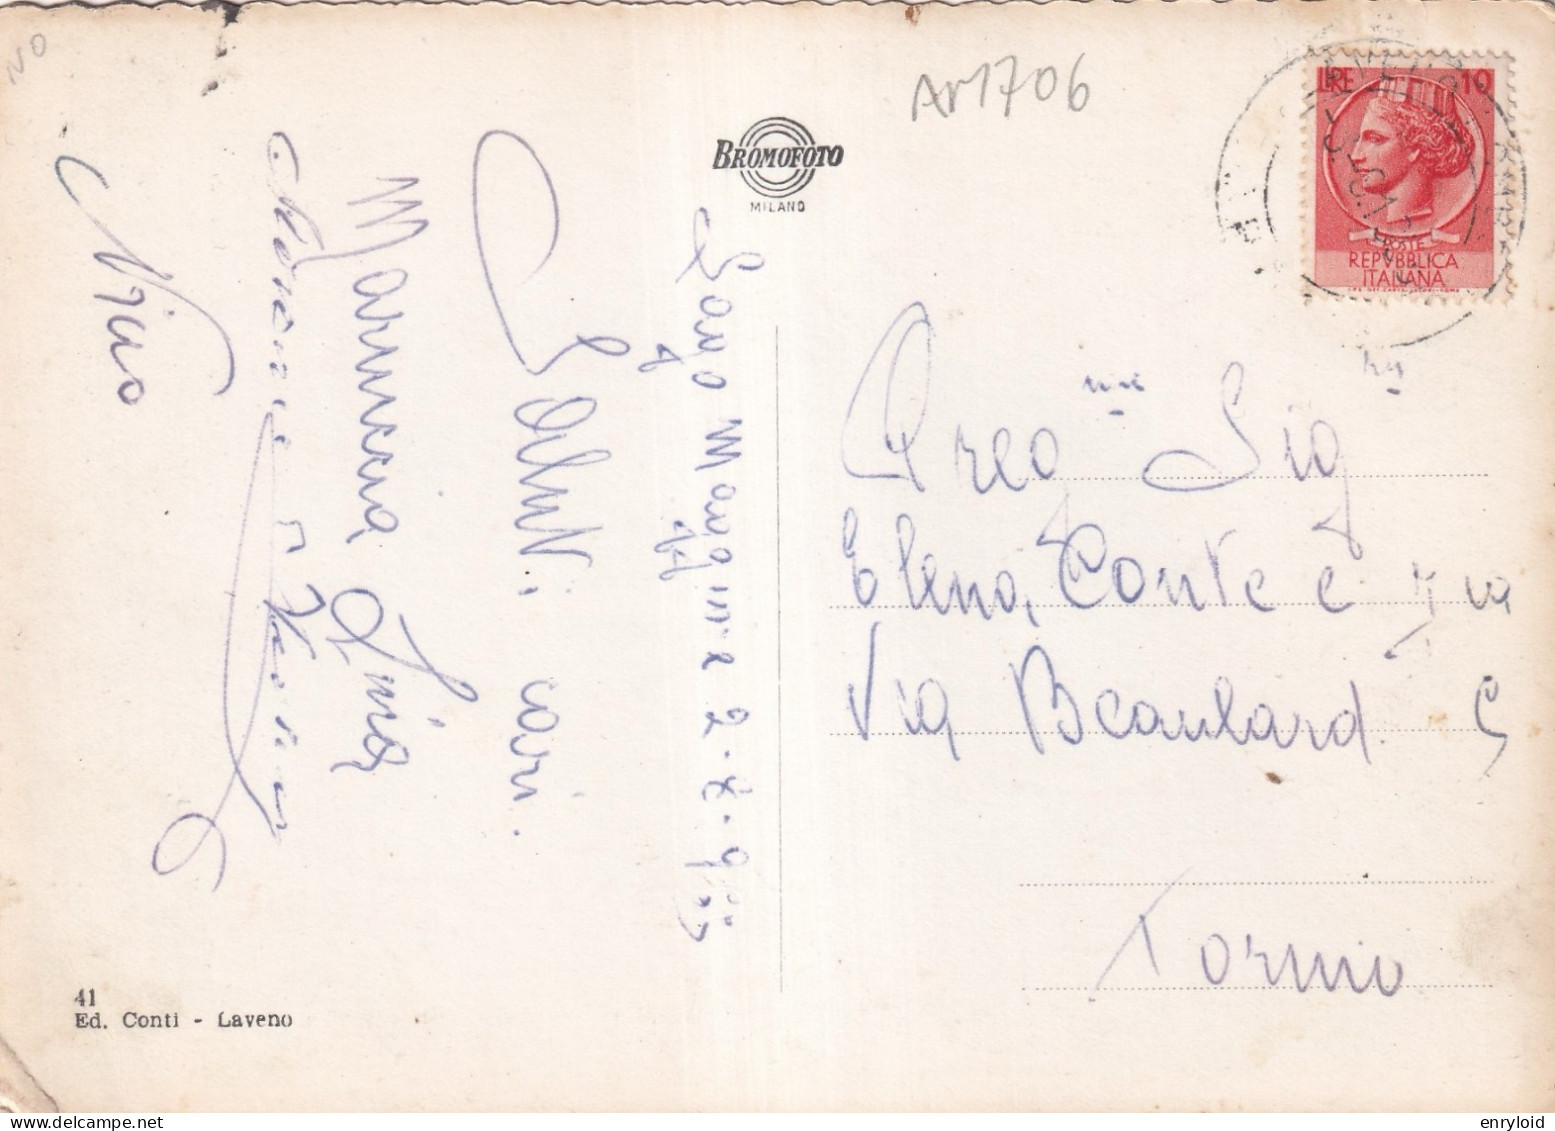 NO
Ar1706
BROMOFOTO
MILANO
LIRE 10
POSTE
REPVBBLICA
ITALIANA
Lago Maggiore 2-8-955
Saluti cari.
Mariuccia Lina
Nino
Preg me Sig
Elena Conte e
Via Beaulard 5
Torino
41
Ed. Conti - Laveno
enryloid